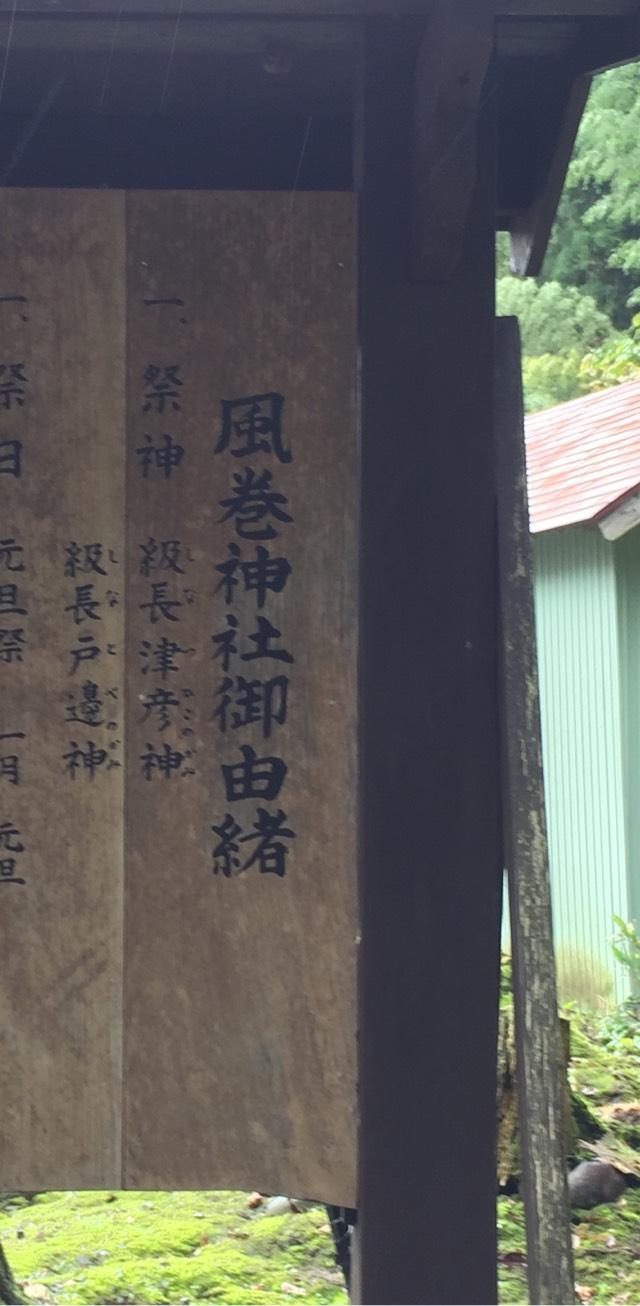 風巻神社御由緒
一、祭神 級長津彦神
しなつひこのがみ
級長戸邊神
しなとべのがみ
一、祭日 元旦祭 一月 元旦